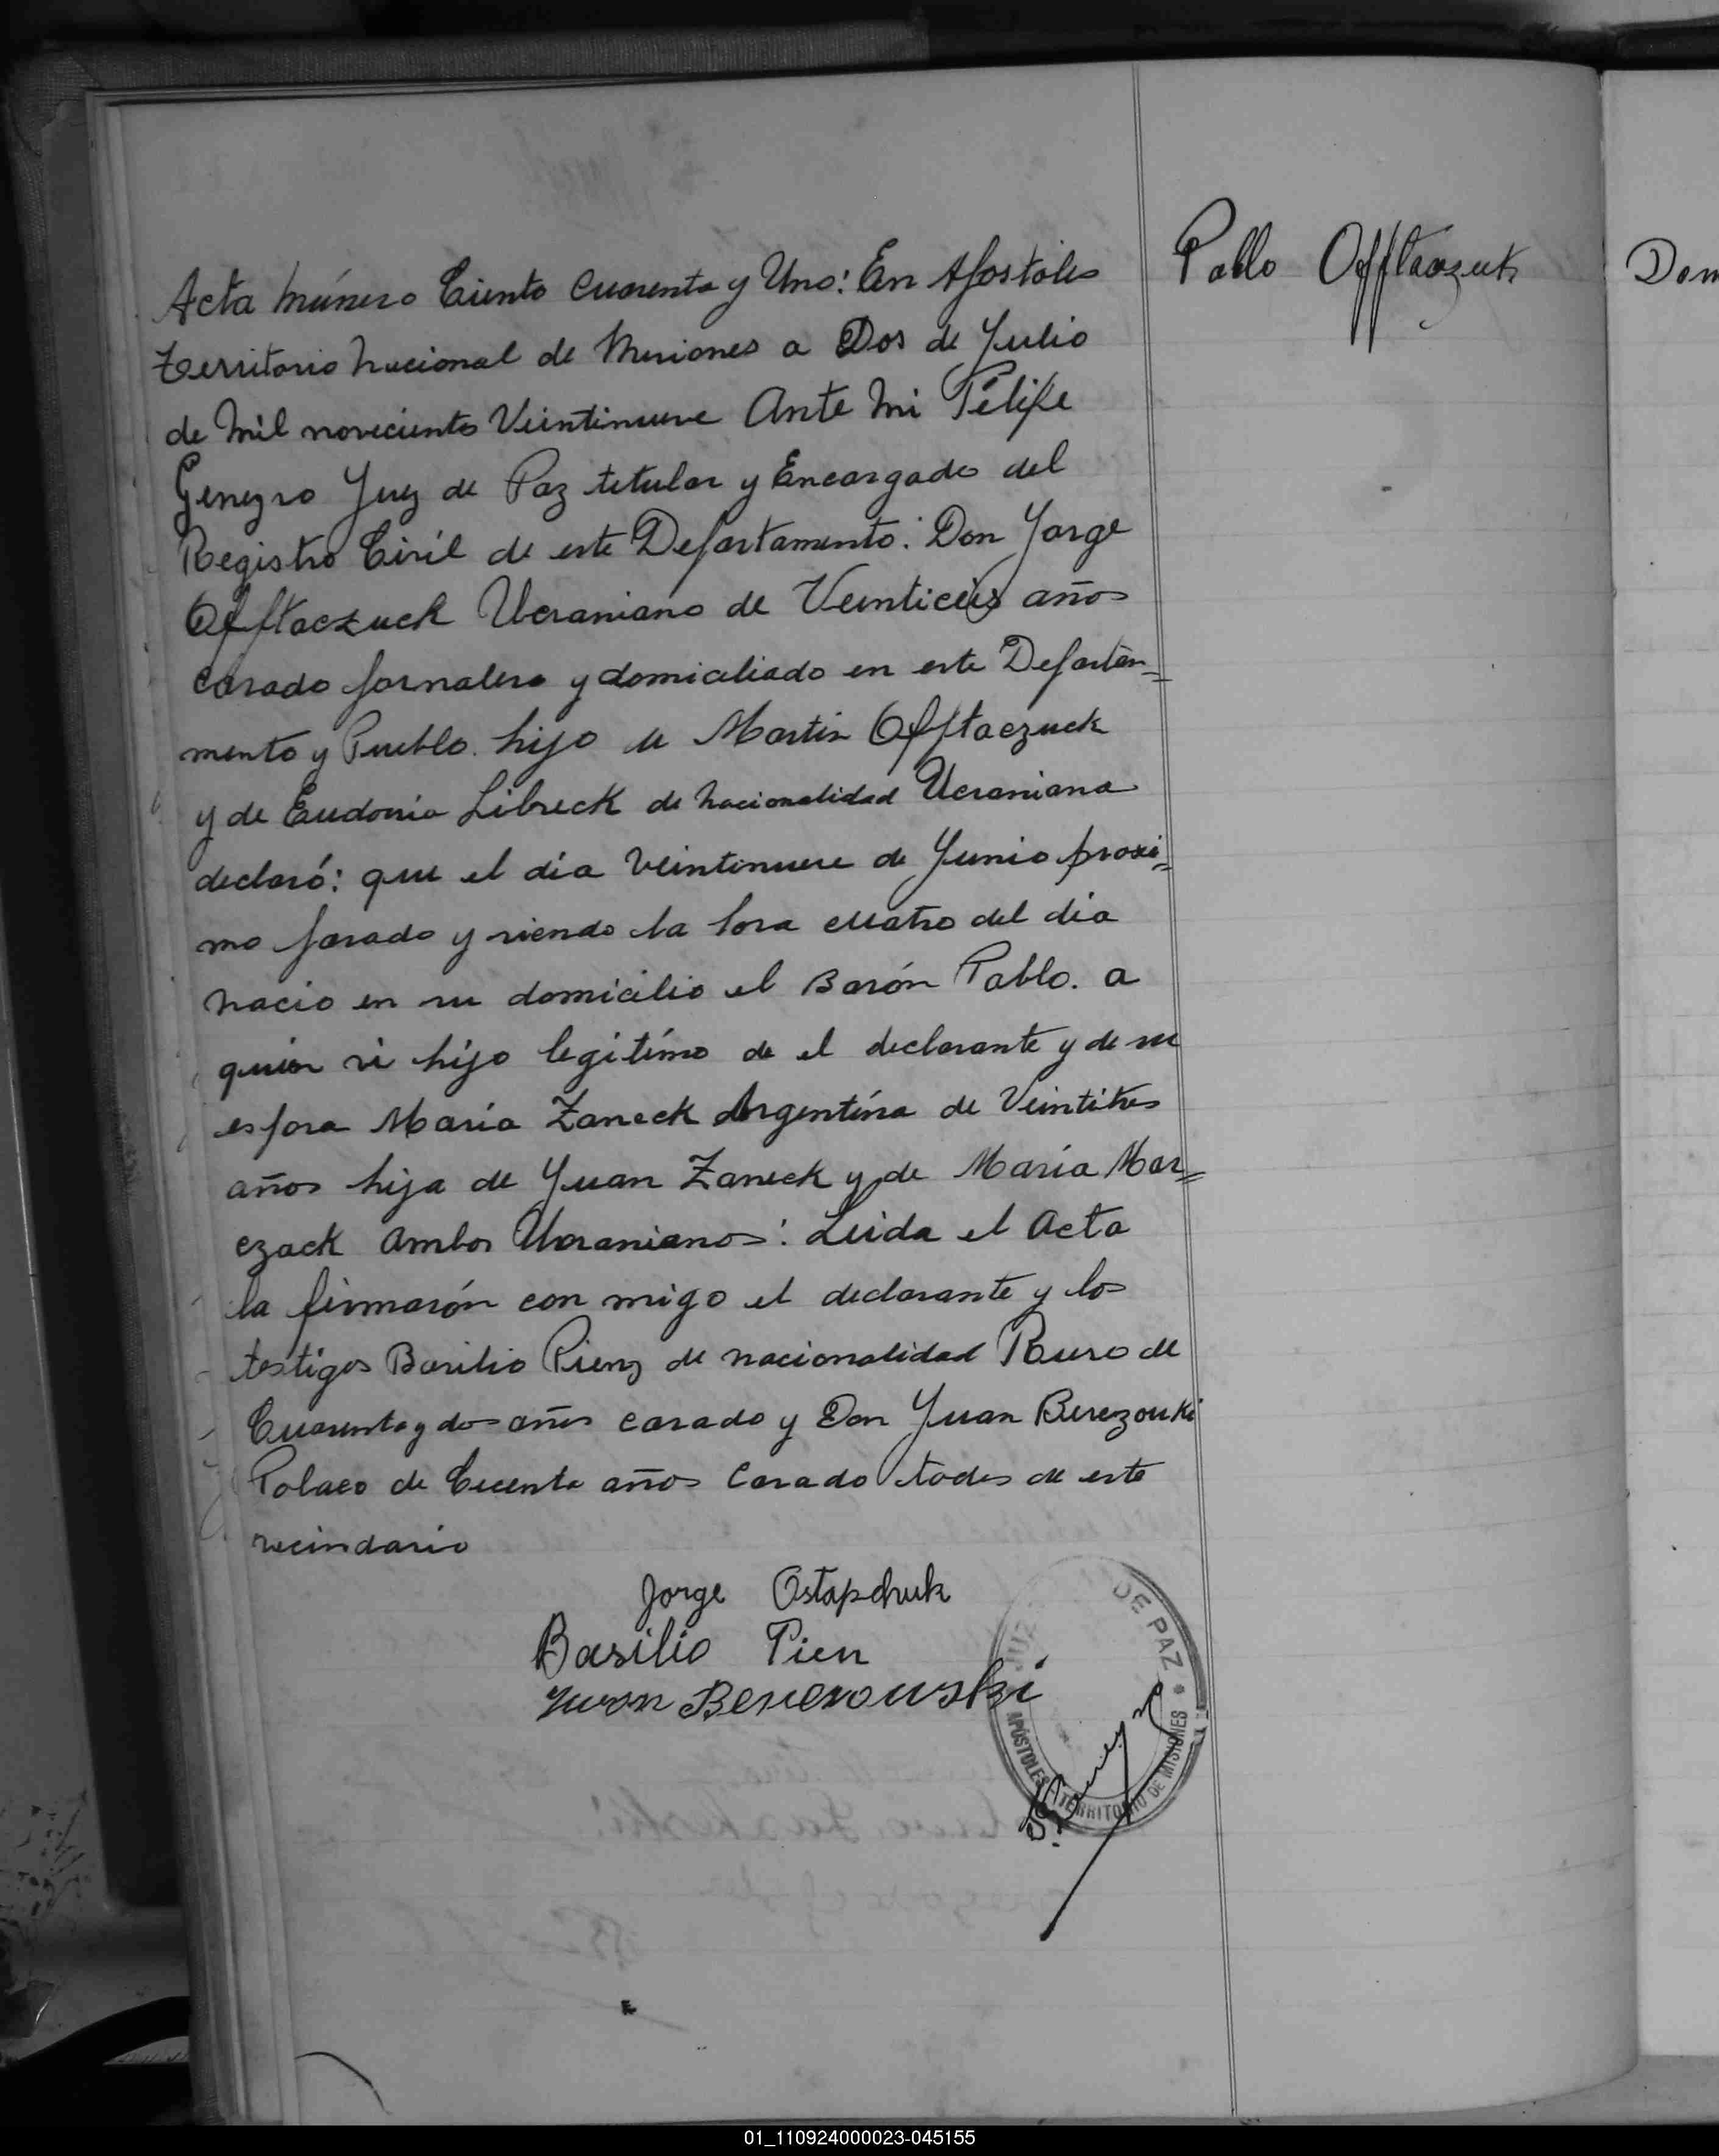 Pablo Offtaczuk
Dom
Acta número Ciento Cuarenta y Uno: En Apostoles
territorio nacional de Misiones a Dos de Julio
de mil novecientos Veintinueve Ante mi Felipe
Juez de Paz titular y Encargado del
Registro Civil de este Departamento: Don Jorge
Offtaczuck Ucraniano de Veinticeis años
casado jornalero y domiciliado en este Departa=
mento y Pueblo. hijo de Martin Offtaczuck
y de Eudonia Libreck de nacionalidad Ucraniana
declaró: que el día veintinueve de Junio proxi=
mo pasado y siendo la hora cuatro del día
nacio en su domicilio el Barón Pablo. a
quien vi hijo legitímo de el declarante y de su
esposa María Zaneck Argentína de Veintitres
años hija de Juan Zaneck y de María Mar=
czack ambos Ucranianos: Leida el Acta
la firmarón con migo el declarante y los
testigos Basilio Pienz de nacionalidad Ruso de
Cuarenta y dos años casado y Don Juan Berezouki
Polaco de años Casado todos de este
vecindario
Jorge Ostapchuk
Basilio Pien
Juan Berezowski
JUZ DE PAZ *
APÓSTOLES TERRITORIO DE MISIONES
01_110924000023-045155